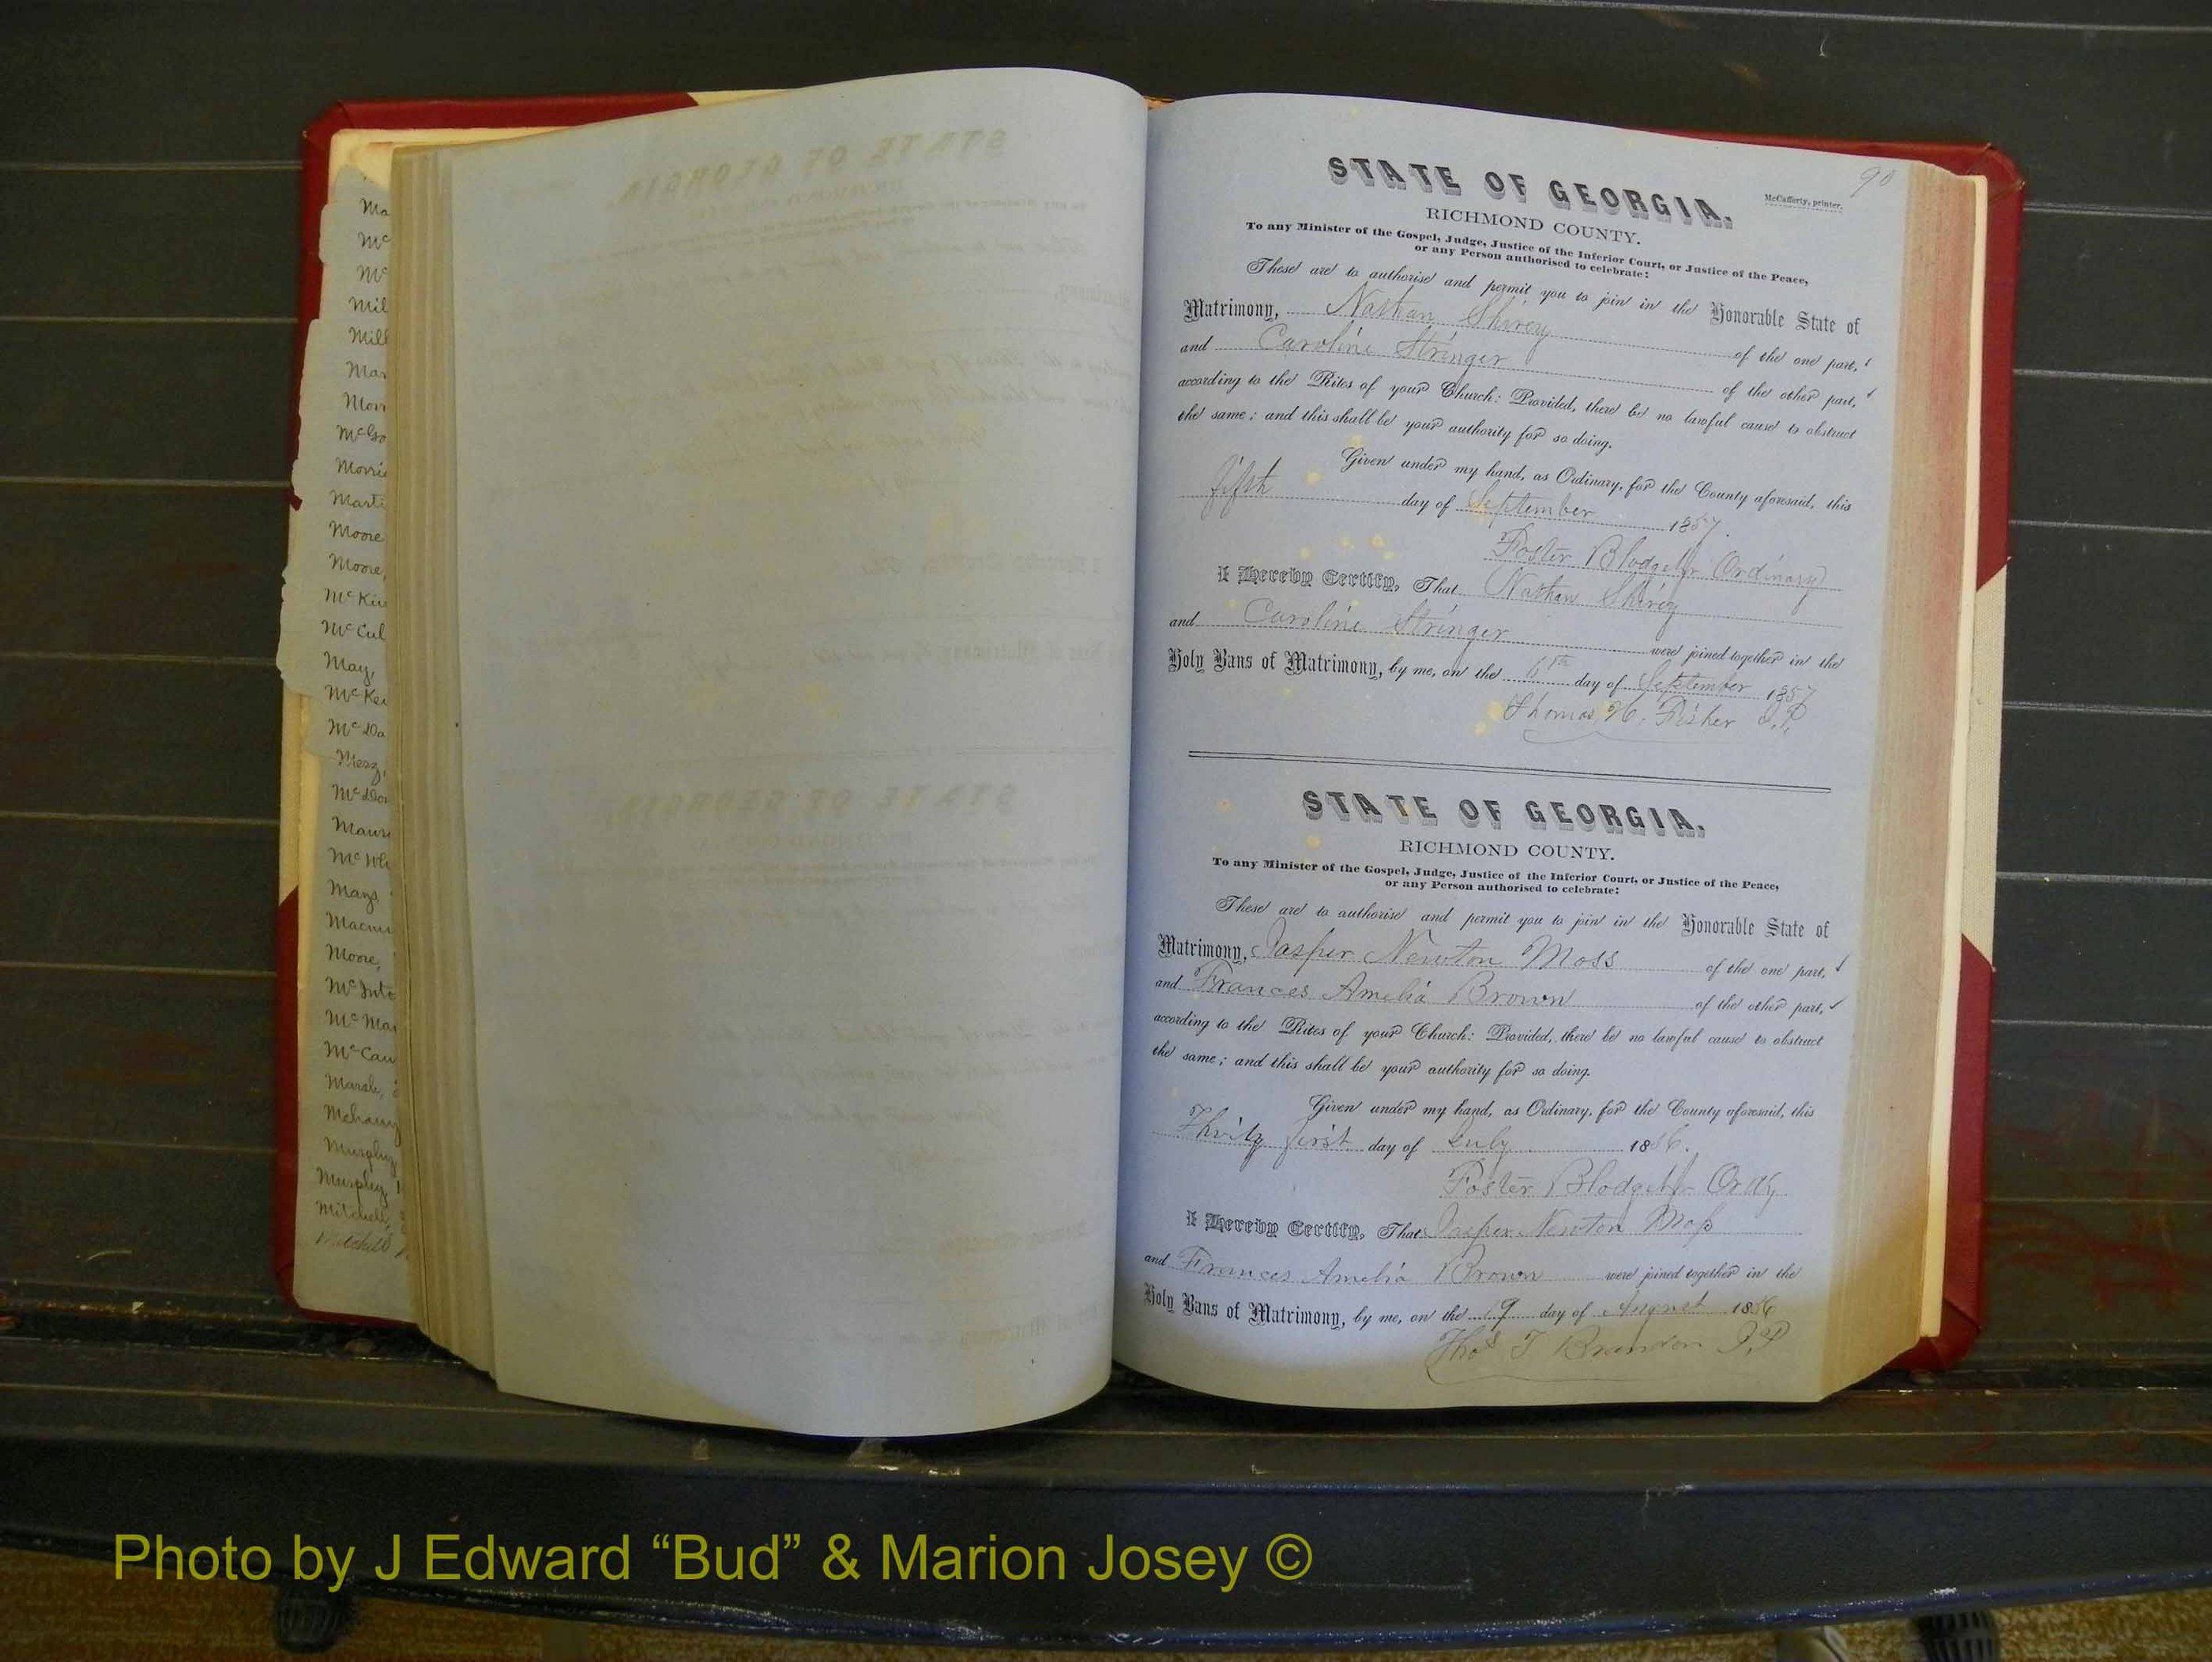 Ma
Mc
Mc
Mil
Mill
Mar
Morr
McGo
Morri
Marti
Moore
Moore,
McKin
McCul
May,
McKe
McDa
McDon
Maur
McWh
Mays
Macmu
Moore,
McInto
McMa
McCan
Marsh,
Mehany
Murphy
Murphy,
Mitchell,
Mitchell
90
McCafferty, printer.
STATE OF GEORGIA.
RICHMOND COUNTY.
To any Minister of the Gospel, Judge, Justice of the Inferior Court, or Justice of the Peace,
or any Person authorised to celebrate:
These are to authorise and permit you to join in the Honorable State of
Matrimony, Nathan Shirey of the one part,
and Caroline Stringer of the other part,
according to the Rites of your Church: Provided, there be no lawful cause to obstruct
the same; and this shall be your authority for so doing.
Given under my hand, as Ordinary, for the County aforesaid, this
fifth day of September 1857.
Foster Blodget Jr Ordinary
I Hereby Certify, That Nathan Shirey
and Caroline Stringer were joined together in the
Holy Bans of Matrimony, by me, on the 6th day of September 1857
Thomas H. Fisher J.P.
STATE OF GEORGIA.
RICHMOND COUNTY.
To any Minister of the Gospel, Judge, Justice of the Inferior Court, or Justice of the Peace,
or any Person authorised to celebrate:
These are to authorise and permit you to join in the Honorable State of
Matrimony, Jasper Newton Moss of the one part,
and Frances Amelia Brown of the other part,
according to the Rites of your Church: Provided, there be no lawful cause to obstruct
the same; and this shall be your authority for so doing.
Given under my hand, as Ordinary, for the County aforesaid, this
Thirty first day of July 1856.
Foster Blodget Jr Ordy
I Hereby Certify, That Jasper Newton Moss
and Frances Amelia Brown were joined together in the
Holy Bans of Matrimony, by me, on the 19 day of August 1856
Thos T Brandon J.P
Photo by J Edward “Bud” & Marion Josey ©